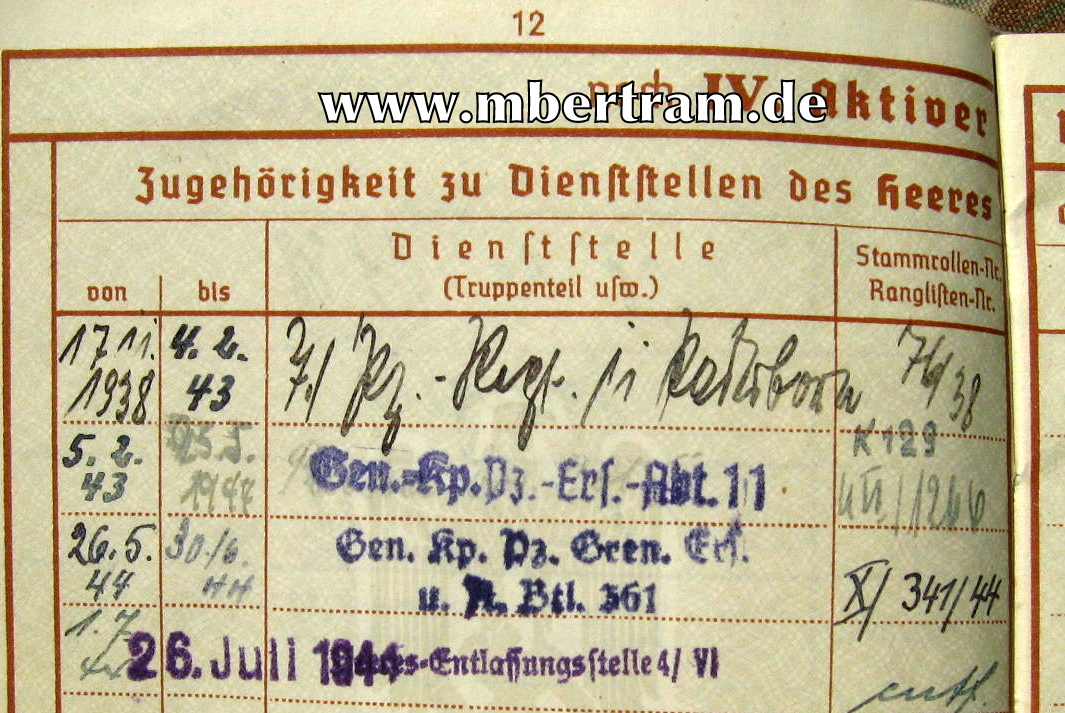 12
www.mbertram.de
noch IV. Aktiver
Zugehörigkeit zu Dienststellen des Heeres
von
bis
Dienststelle
(Truppenteil usw.)
Stammrollen-Nr.
Ranglisten-Nr.
17.11.
1938
4. 2.
43
7./ Pz.-Regt.
38
5. 2.
43
25.5.
1944
Gen.-Kp.Pz.-Ers.-Abt. 11
K 129
/1266
26.5.
44
30./6.
44
Gen. Kp. Pz. Gren. Ers.
u. A. Btl. 361
X/ 341/44
1.7.
44
26. Juli 1944
Heeres-Entlassungsstelle 4/ VI
entl.